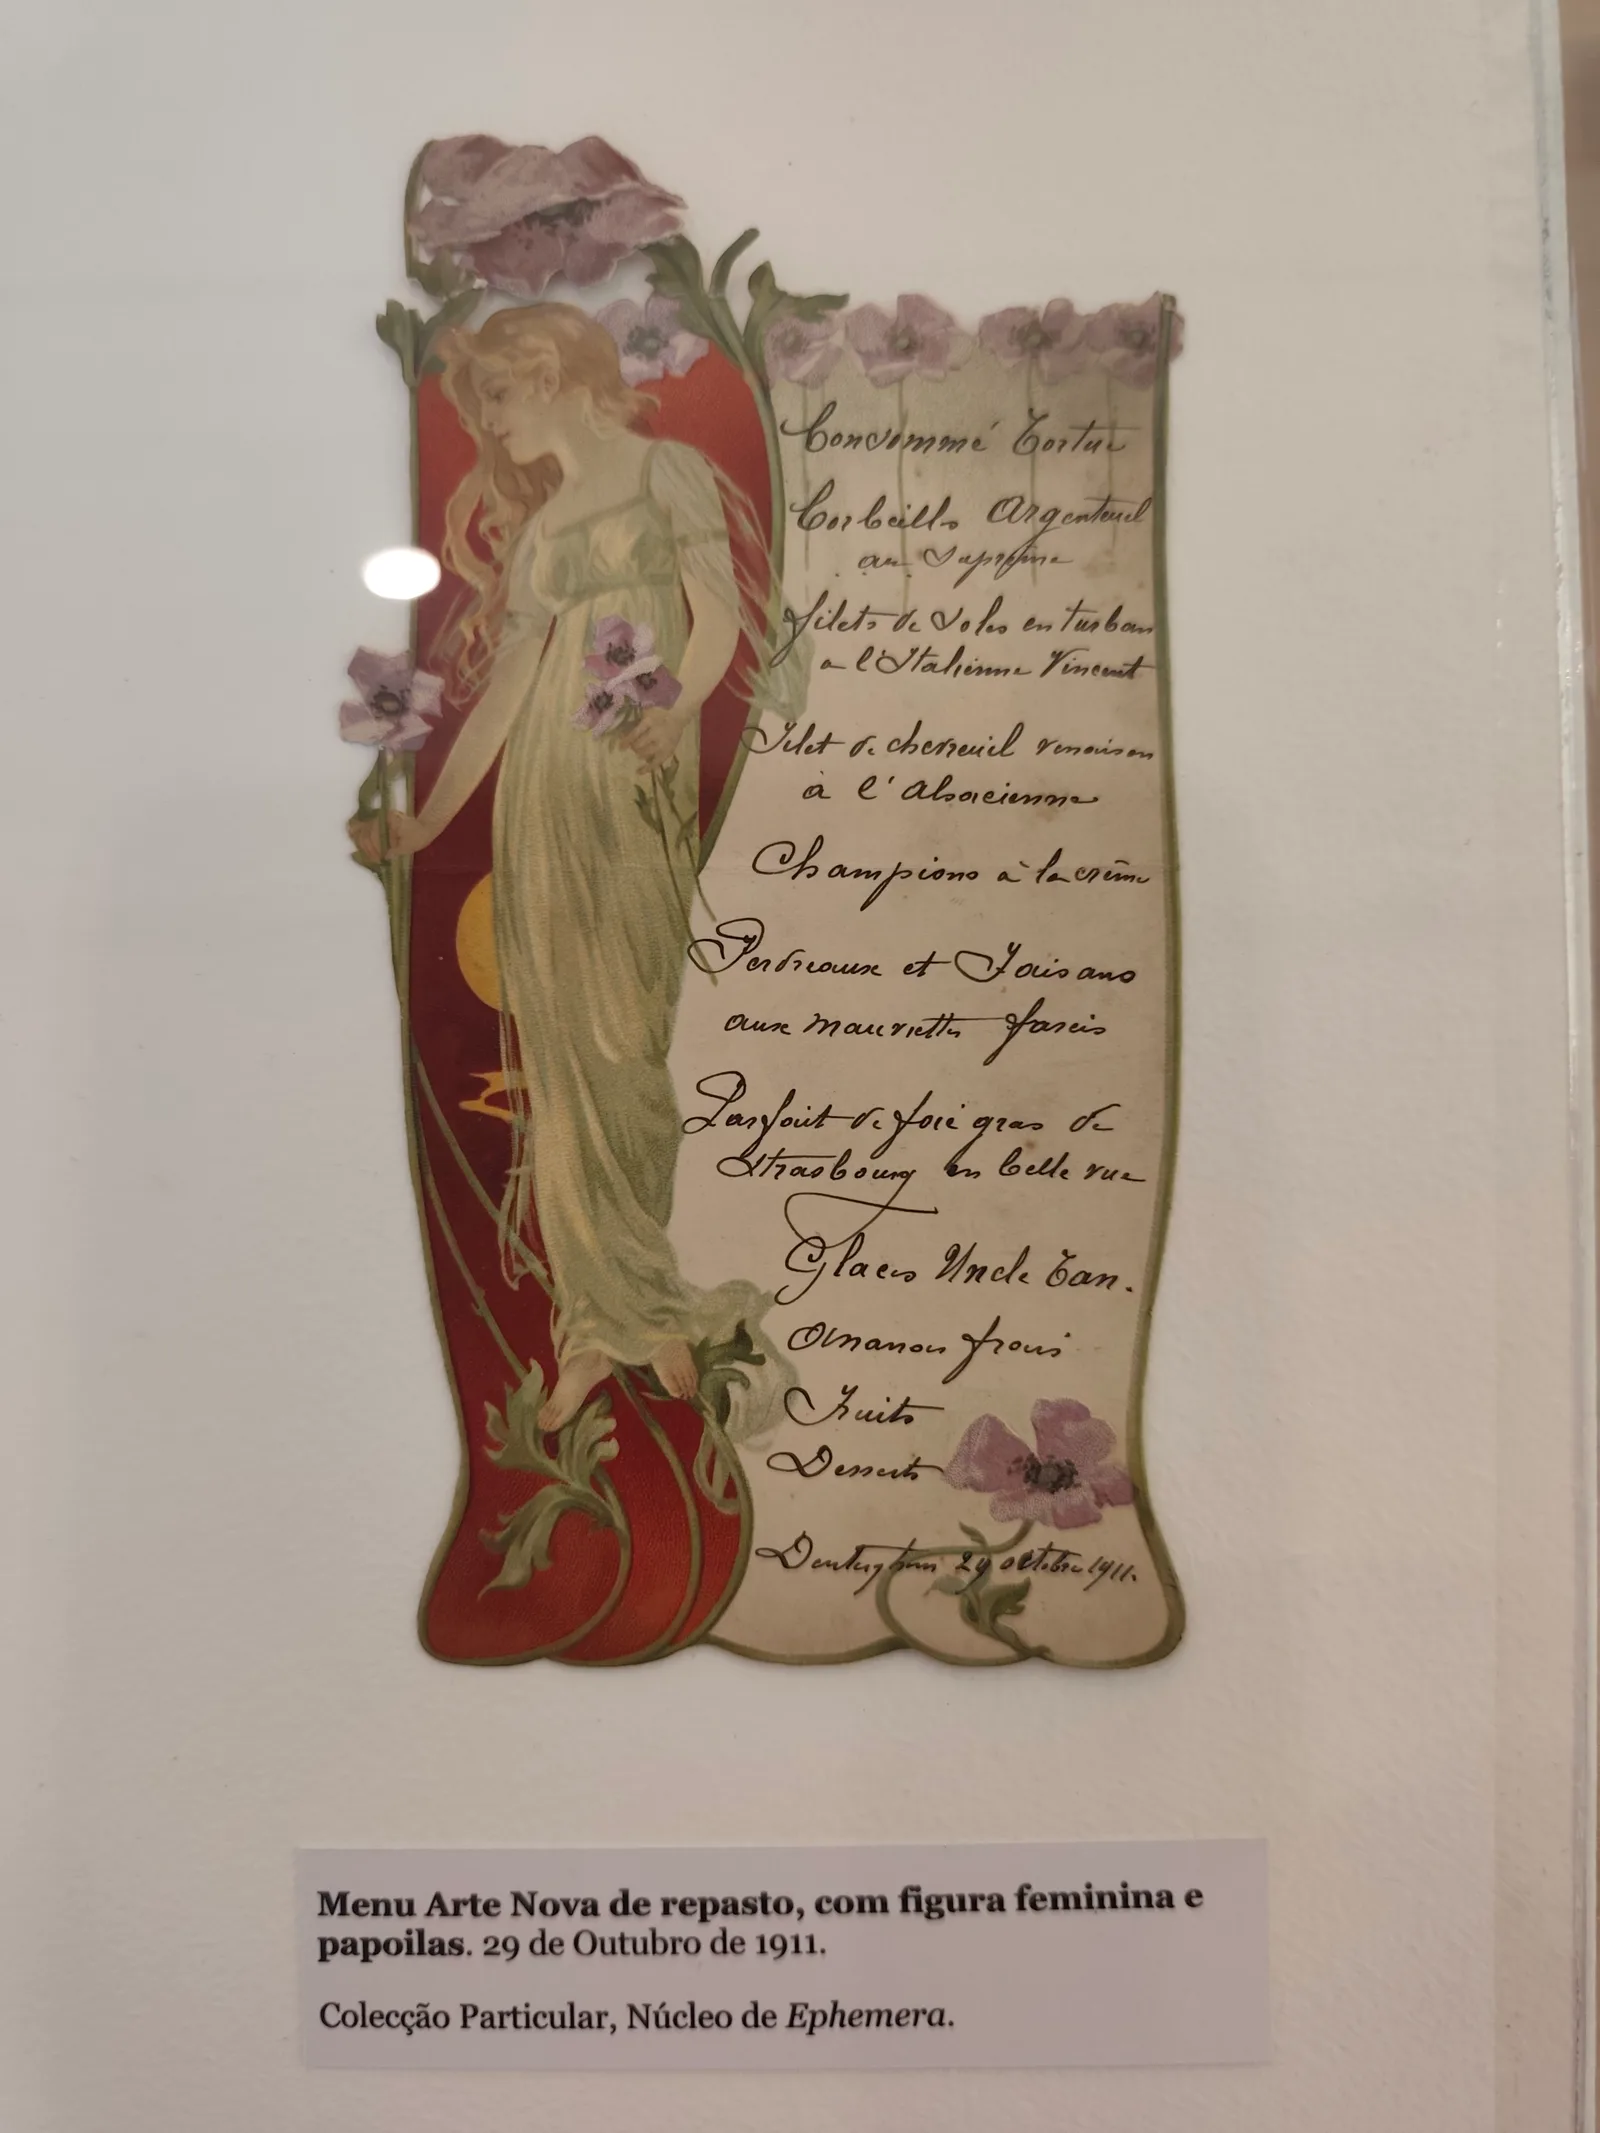 Consommé Tortue
Corbeills Argenteuil
au Suprême
filets de Soles en turban
a l'Italienne Vincent
Filet de chevreuil venaison
à l'Alsacienne
Champions à la crême
Perdreaux et Faisans
aux mauviettes farcis
Parfait de foie gras de
Strasbourg en belle vue
Glaces Uncle Tan.
Ananas frais
Fruits
Desserts
29 octobre 1911.
Menu Arte Nova de repasto, com figura feminina e
papoilas. 29 de Outubro de 1911.
Colecção Particular, Núcleo de Ephemera.